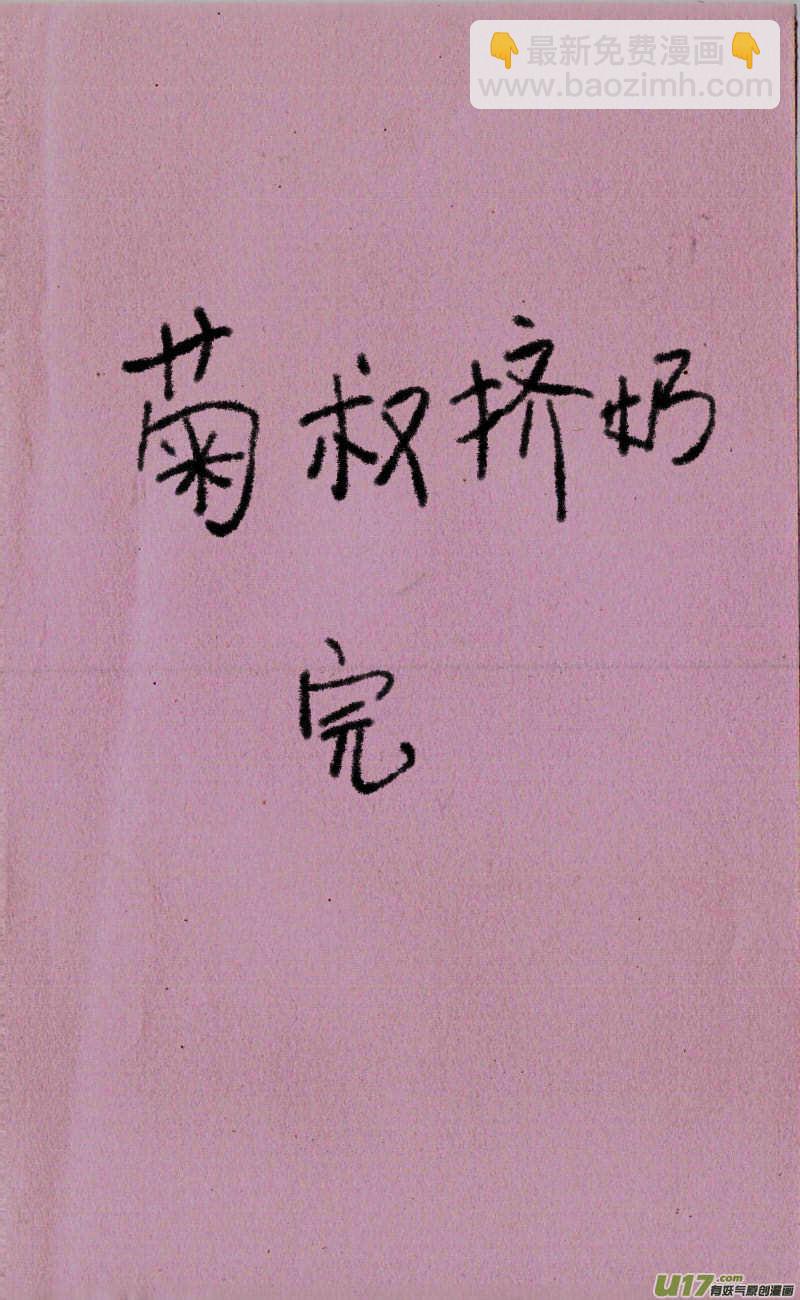 👇最新免费漫画👇
www.baozimh.com
菊叔挤奶
完
U17.com
有妖气原创漫画